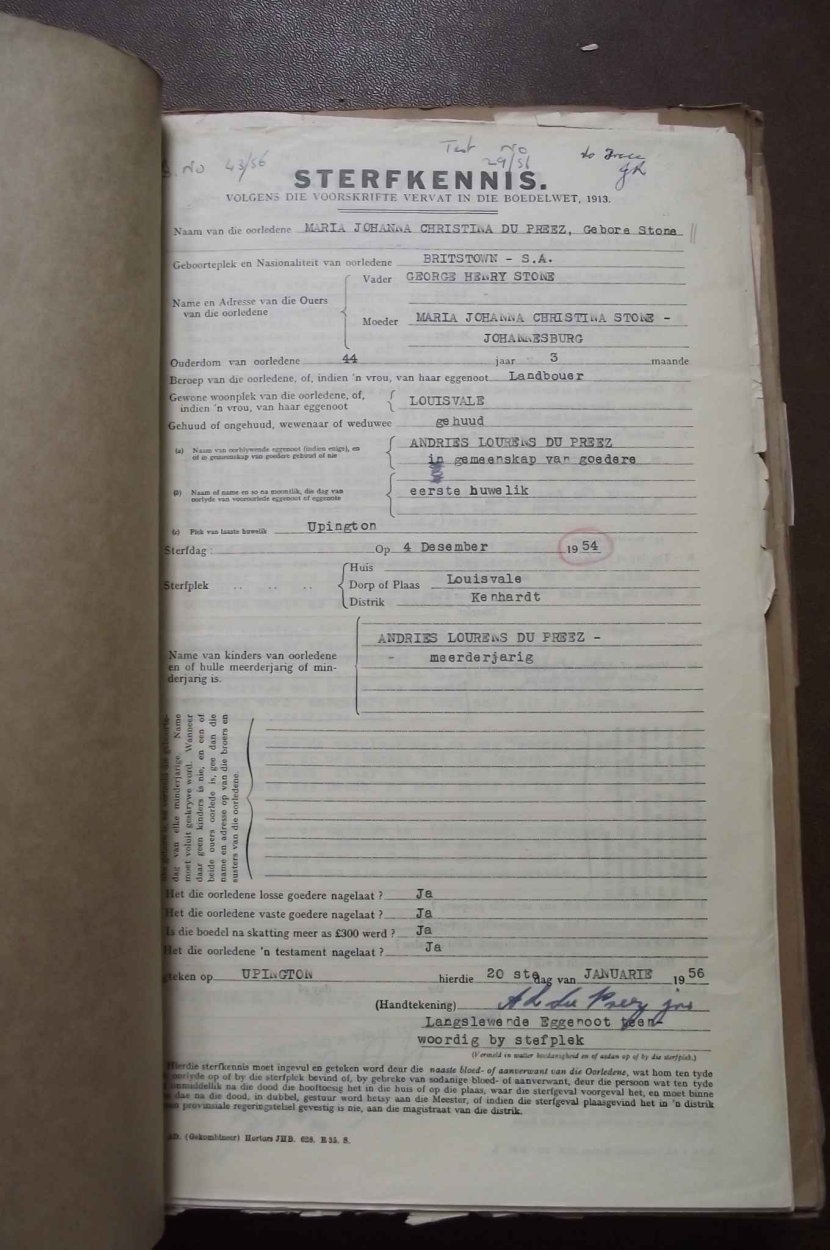 No 43/56
Test No
29/56
to Trace
STERFKENNIS.
VOLGENS DIE VOORSKRIFTE VERVAT IN DIE BOEDELWET, 1913.
Naam van die oorledene MARIA JOHANNA CHRISTINA DU PREEZ, Gebore Stone
Geboorteplek en Nasionaliteit van oorledene BRITSTOWN - S.A.
Name en Adresse van die Ouers van die oorledene
Vader GEORGE HENRY STONE
Moeder MARIA JOHANNA CHRISTINA STONE -
JOHANNESBURG
Ouderdom van oorledene 44 jaar 3 maande
Beroep van die oorledene, of, indien 'n vrou, van haar eggenoot Landbouer
Gewone woonplek van die oorledene, of,
indien 'n vrou, van haar eggenoot LOUISVALE
Gehuud of ongehuud, wewenaar of weduwee gehuud
(a) Naam van oorblywende eggenoot (indien enige), en
of in gemeenskap van goedere gehuud of nie
ANDRIES LOURENS DU PREEZ
in gemeenskap van goedere
(b) Naam of name en so na moontlik, die dag van
oorlyde van vooroorlede eggenoot of eggenote
eerste huwelik
(c) Plek van laaste huwelik Upington
Sterfdag : Op 4 Desember 1954
Sterfplek
Huis
Dorp of Plaas Louisvale
Distrik Kenhardt
Name van kinders van oorledene
en of hulle meerderjarig of min-
derjarig is.
ANDRIES LOURENS DU PREEZ -
- meerderjarig
dag van elke minderjarige. Name
moet voluit geskrywe word. Wanneer
daar geen kinders is nie, en een of
beide ouers oorlede is, gee dan die
name en adresse op van die broers en
susters van die oorledene.
Het die oorledene losse goedere nagelaat ? Ja
Het die oorledene vaste goedere nagelaat ? Ja
Is die boedel na skatting meer as £300 werd ? Ja
Het die oorledene 'n testament nagelaat ? Ja
geteken op UPINGTON hierdie 20 ste dag van JANUARIE 1956
(Handtekening) A L du Preez jnr
Langslewende Eggenoot teen-
woordig by stefplek
(Vermeld in watter hoedanigheid en of aldan op of by die sterfplek.)
Hierdie sterfkennis moet ingevul en geteken word deur die naaste bloed- of aanverwant van die Oorledene, wat hom ten tyde
oorlyde op of by die sterfplek bevind of, by gebreke van sodanige bloed- of aanverwant, deur die persoon wat ten tyde
onmiddelik na die dood die hooftoesig het in die huis of op die plaas, waar die sterfgeval voorgeval het, en moet binne
dae na die dood, in dubbel, gestuur word hetsy aan die Meester, of indien die sterfgeval plaasgevind het in 'n distrik
provinsiale regeringstelsel gevestig is nie, aan die magistraat van die distrik.
(Gekombineer) Hortors JHB. 628. R 35. S.